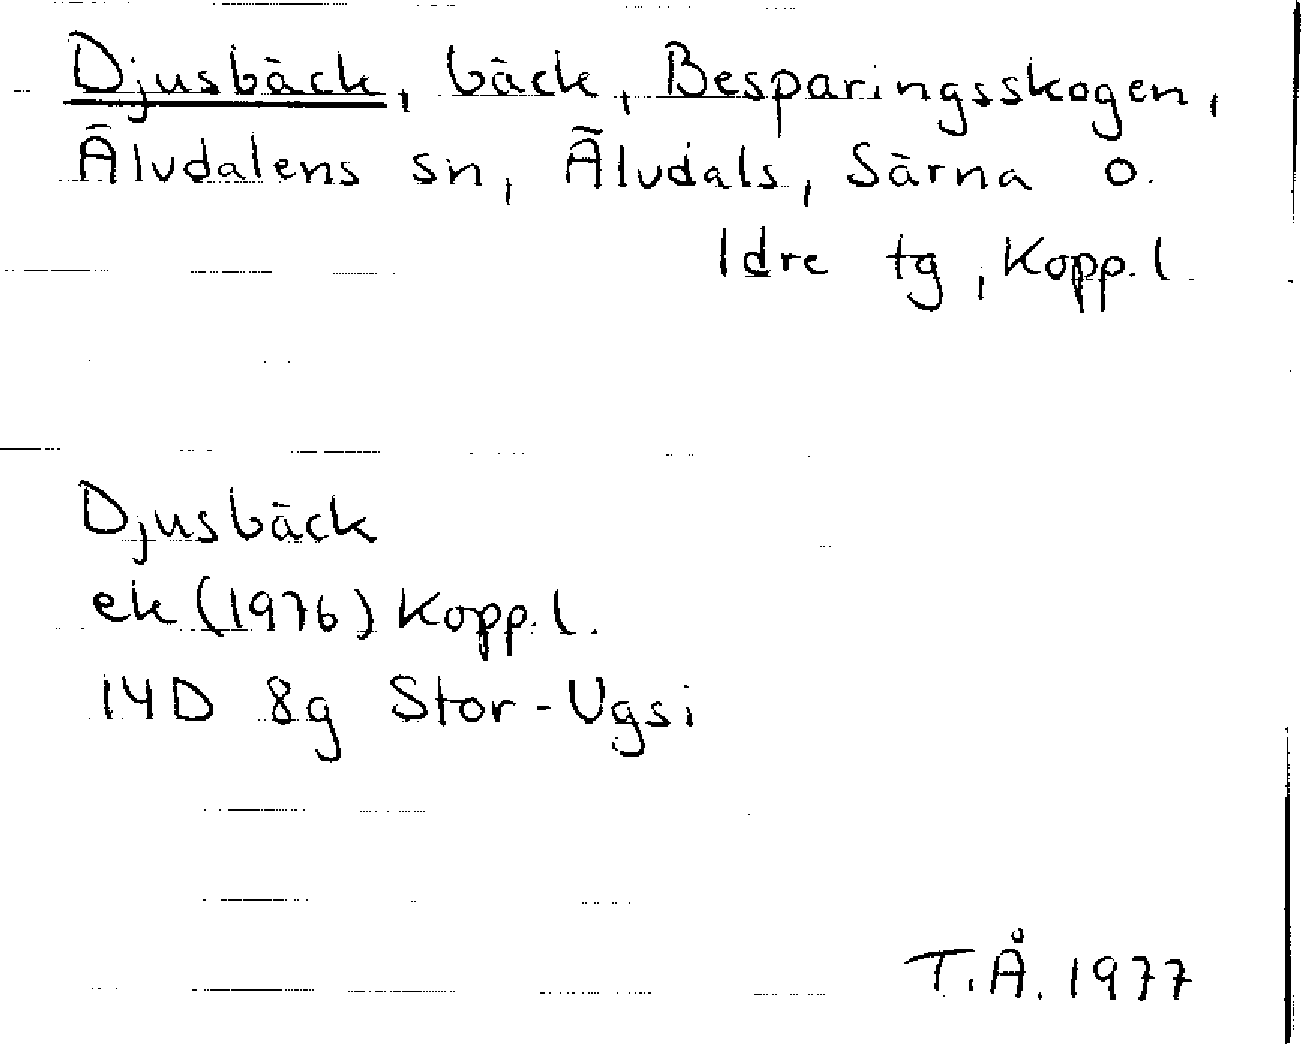 Djusbäck, bäck, Besparingsskogen,
Älvdalens sn, Älvdals, Särna o.
Idre tg, Kopp. l.
Djusbäck
ek (1976) Kopp. l.
14D 8g Stor-Ugsi
T.Å. 1977